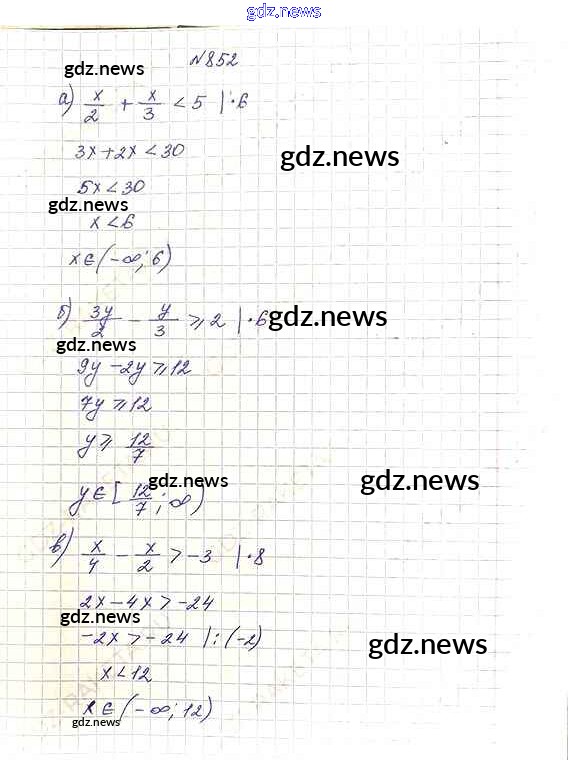 gdz.news
N852
gdz.news
а) x/2 + x/3 < 5 | ·6
3x+2x<30
gdz.news
5x<30
gdz.news
x<6
x∈(-∞; 6)
б) 3y/2 - y/3 ⩾ 2 | ·6
gdz.news
gdz.news
9y-2y⩾12
7y⩾12
y⩾ 12/7
gdz.news
gdz.news
y∈[12/7; ∞)
в) x/4 - x/2 > -3 | ·8
2x-4x>-24
gdz.news
-2x>-24 |:(-2)
gdz.news
x<12
x∈(-∞; 12)
gdz.news